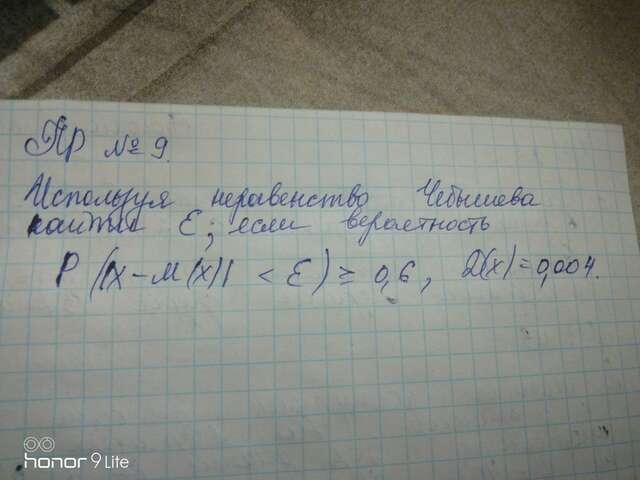 Пр № 9.
Используя неравенство Чебышева
найти ε; если вероятность
P (|x - M(x)| < ε) ≥ 0,6, D(x) = 0,004.
honor 9 Lite